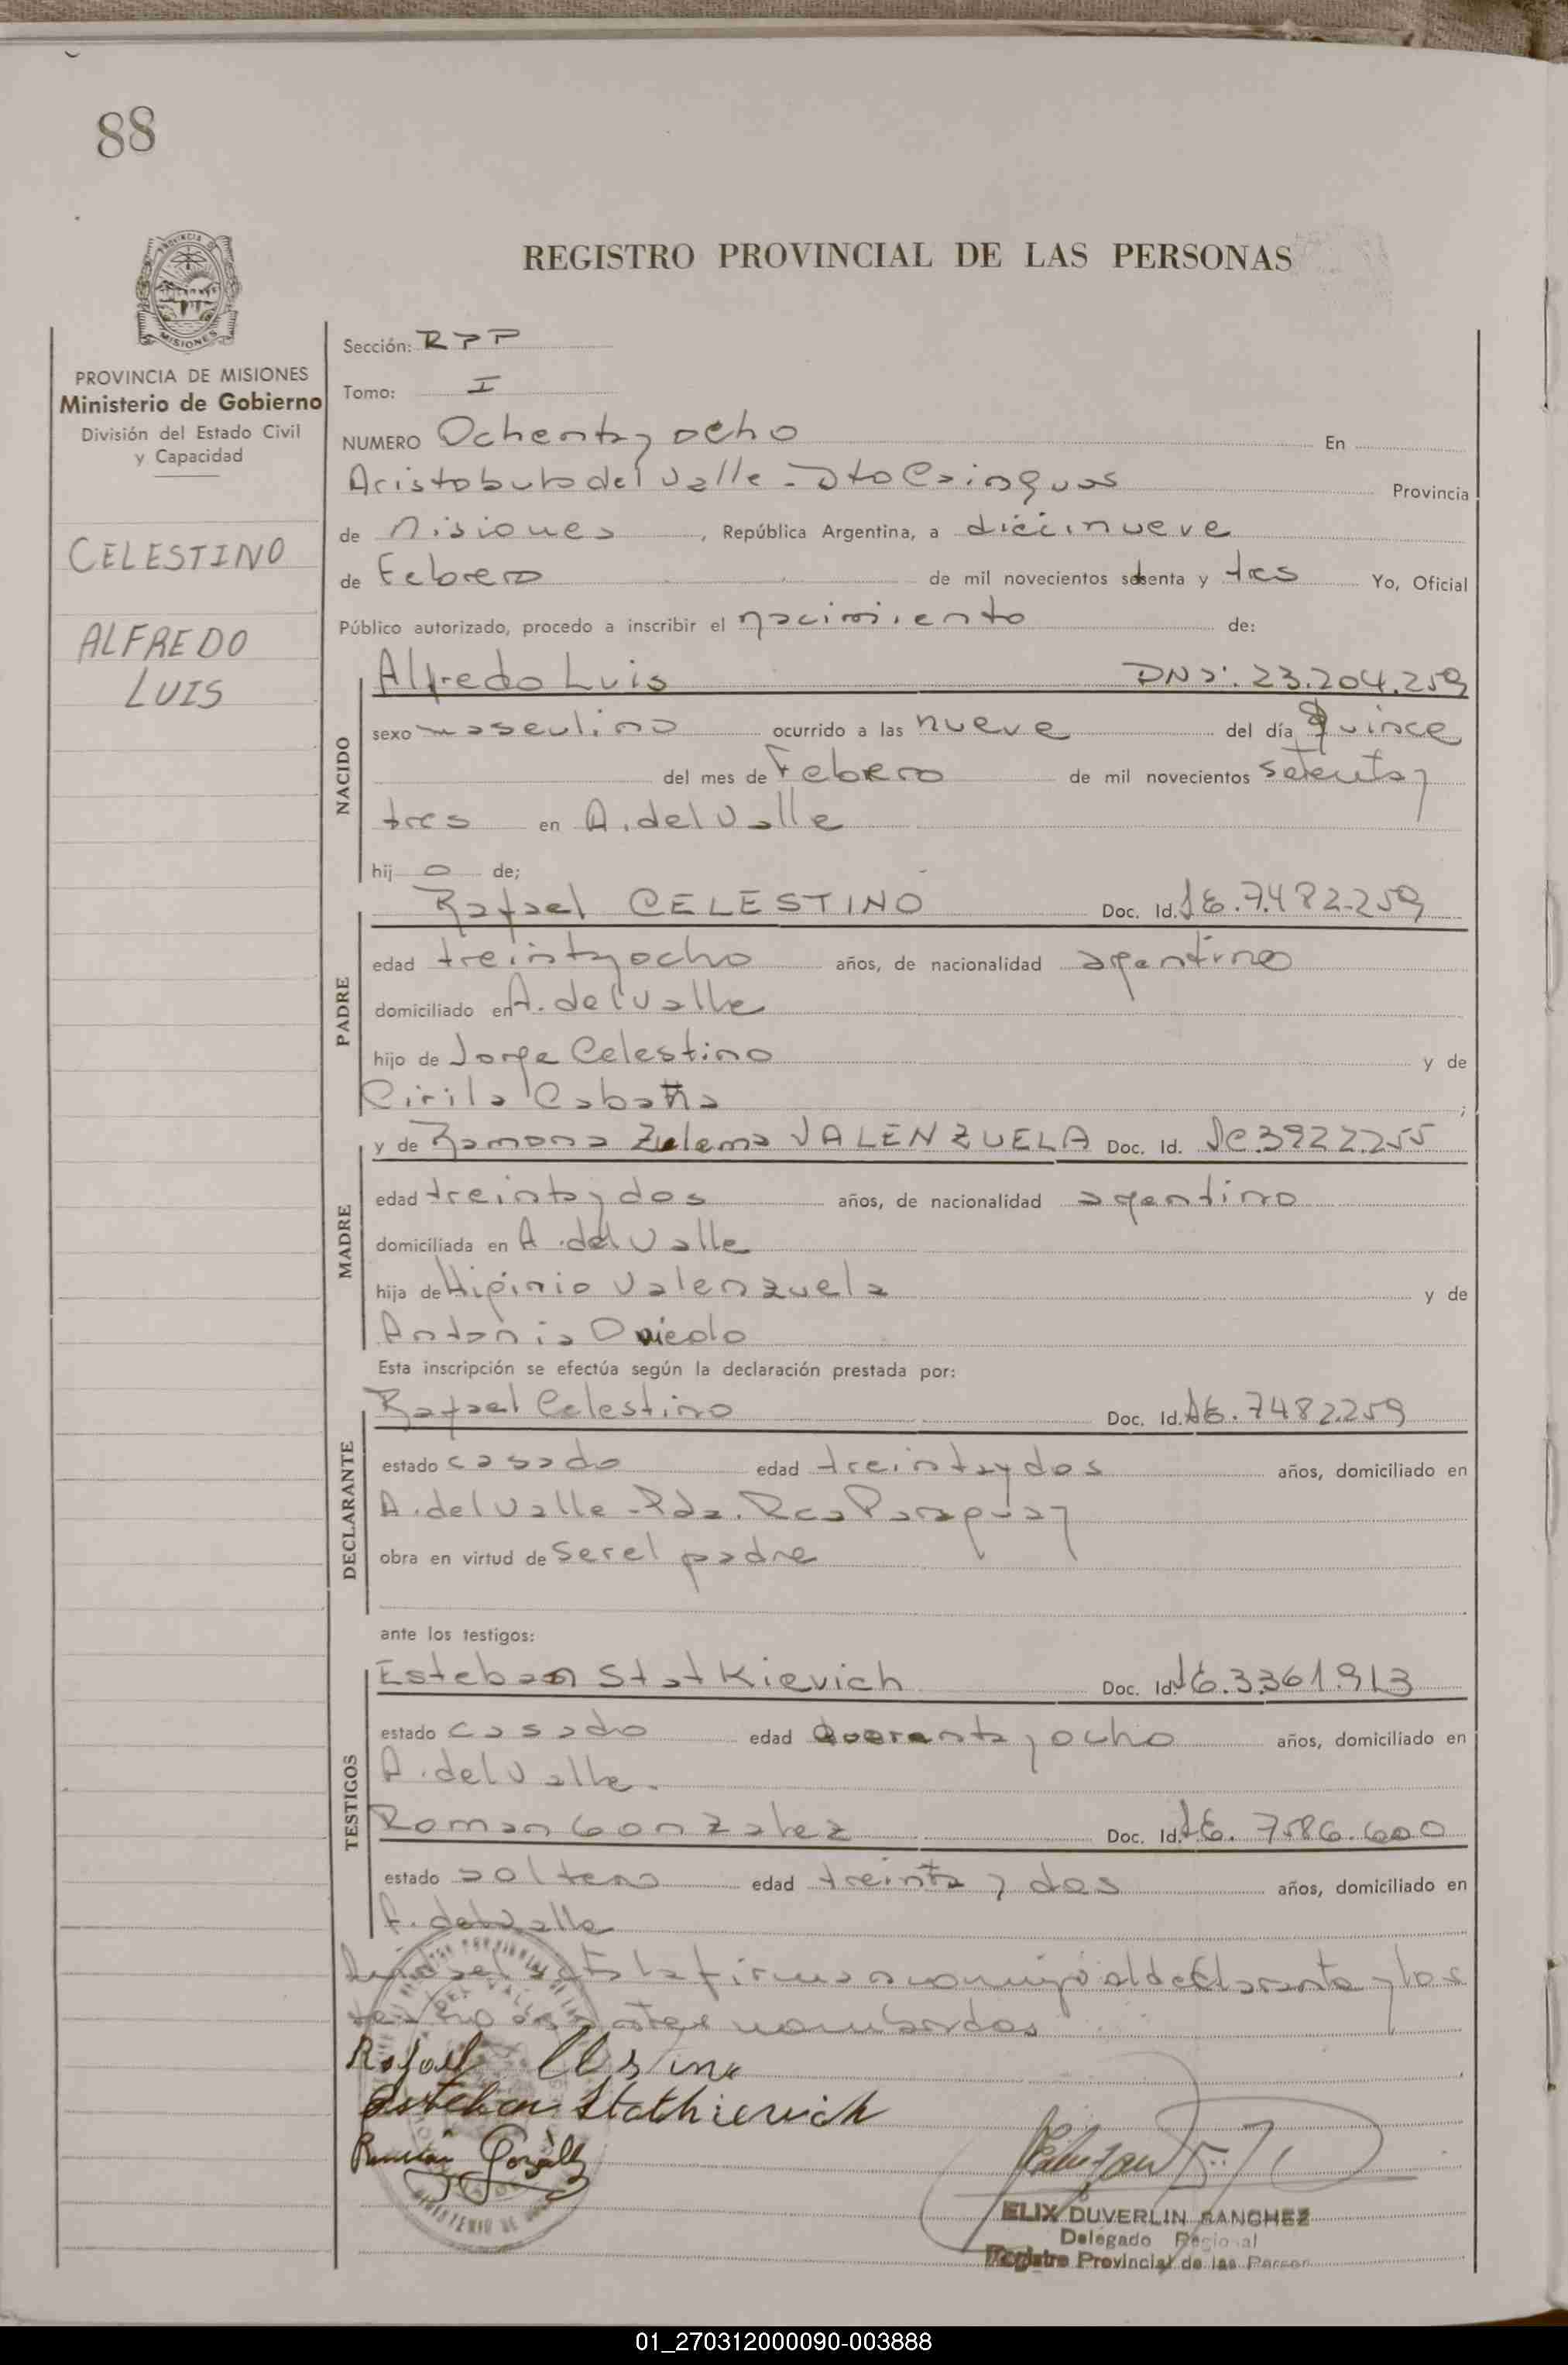 88
REGISTRO PROVINCIAL DE LAS PERSONAS
MISIONES
PROVINCIA DE MISIONES
Ministerio de Gobierno
División del Estado Civil
y Capacidad
CELESTINO
ALFREDO
LUIS
Sección: RPP
Tomo: I
NUMERO Ochenta y ocho En
Aristobulo del Valle - Dto Cainguas Provincia
de Misiones, República Argentina, a diecinueve
de Febrero de mil novecientos setenta y tres Yo, Oficial
Público autorizado, procedo a inscribir el nacimiento de:
NACIDO
Alfredo Luis DNI: 23.204.259
sexo masculino ocurrido a las nueve del día quince
del mes de Febrero de mil novecientos setenta y
tres en A. del Valle
hij o de;
PADRE
Rafael CELESTINO Doc. Id. LE. 7.482.259
edad treinta y ocho años, de nacionalidad argentino
domiciliado en A. del Valle
hijo de Jorge Celestino y de
Cirila Cabaña ;
MADRE
y de Ramona Zulema VALENZUELA Doc. Id. LC. 3922.255
edad treinta y dos años, de nacionalidad argentino
domiciliada en A. del Valle
hija de Higinio Valenzuela y de
Antonia Oviedo
Esta inscripción se efectúa según la declaración prestada por:
DECLARANTE
Rafael Celestino Doc. Id. LE. 7482.259
estado casado edad treinta y dos años, domiciliado en
A. del Valle - Pda. Rca Paraguay
obra en virtud de ser el padre
ante los testigos:
TESTIGOS
Esteban Statkievich Doc. Id. LE. 3.361.913
estado casado edad Quarenta y ocho años, domiciliado en
A. del Valle.
Roman Gonzalez Doc. Id. LE. 7.586.600
estado soltero edad treinta y dos años, domiciliado en
A. del Valle
la firman conmigo el declarante y los
testigos antes nombrados
Rafael
Esteban Statkievich
ELIX DUVERLIN SANCHEZ
Delegado Regional
Registro Provincial de las Person
01_270312000090-003888